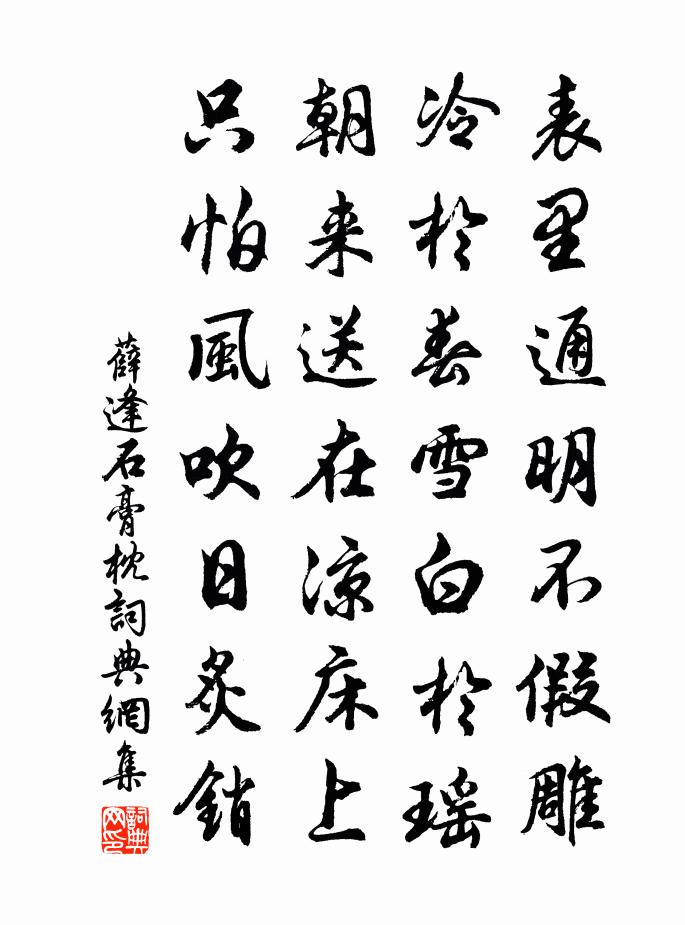 表里通明不假雕
冷於春雪白於瑶
朝来送在凉床上
只怕風吹日炙銷
薛逢石膏枕詞典網集
詞典网印